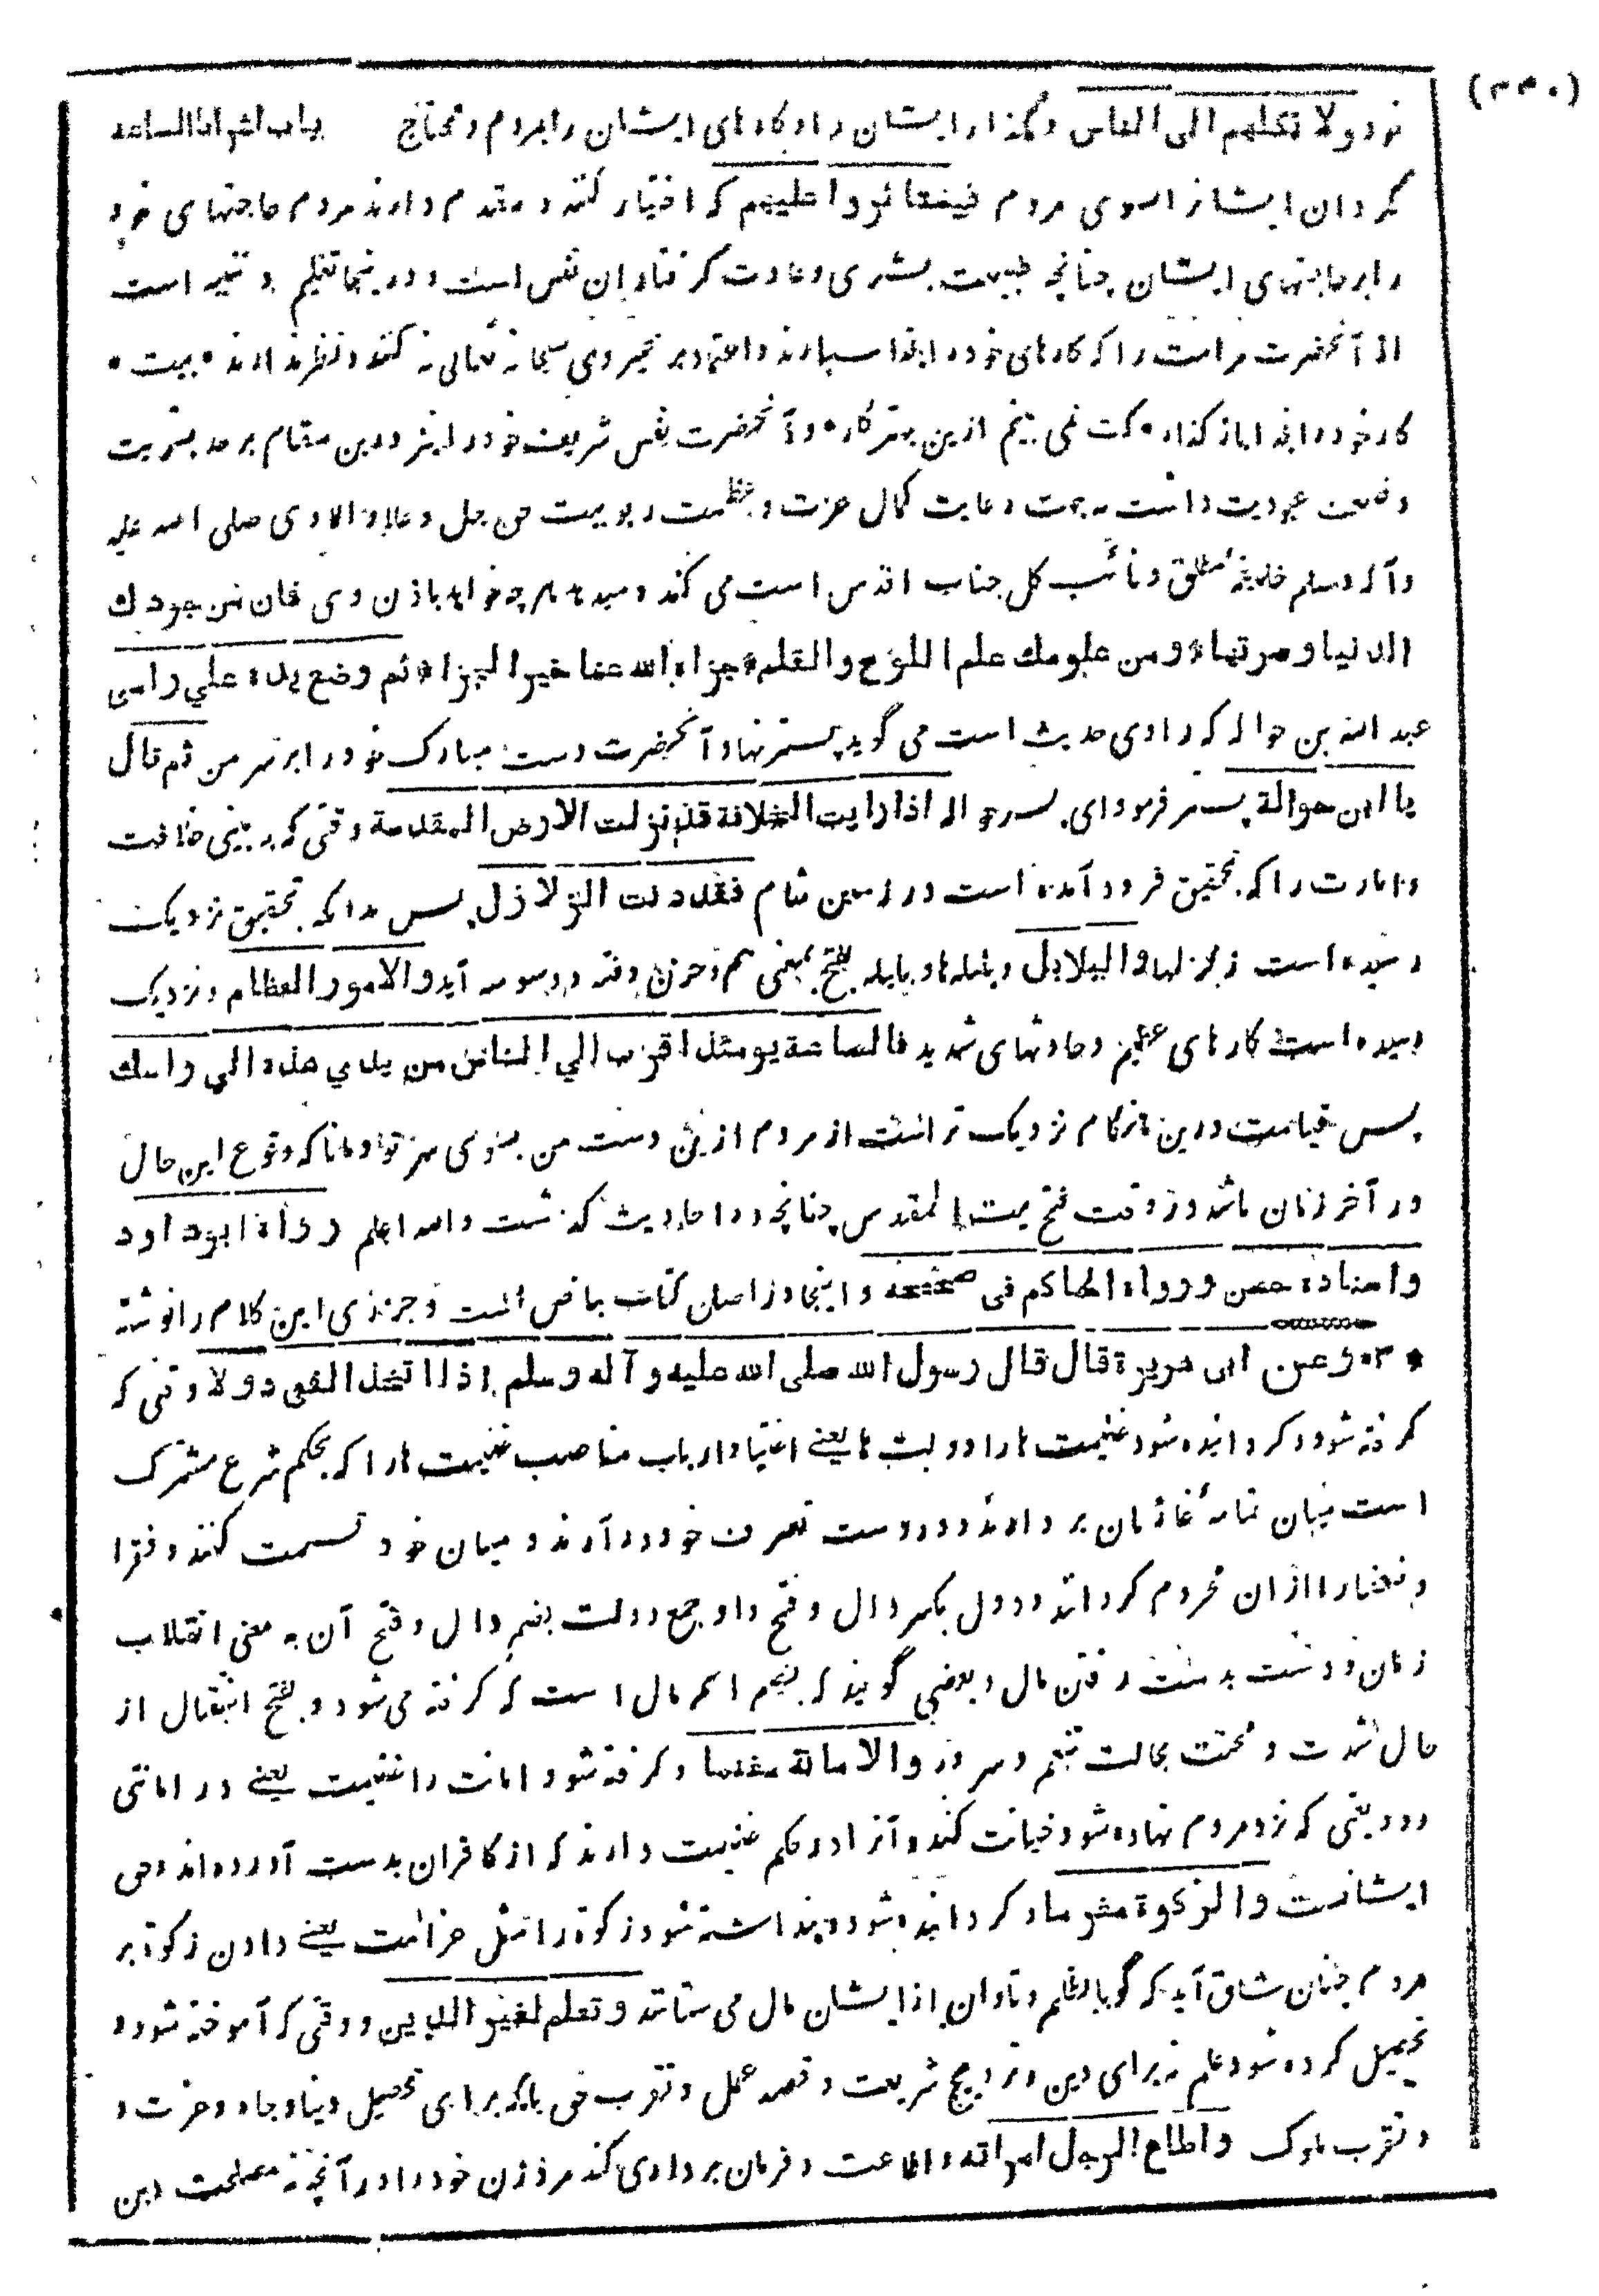 (۳۳۰)
خود ولا تكلهم الى الناس و مگذار ایشان را و کارهای ایشان را بمردم و محتاج باب اشراط الساعه
مگردان ایشانرا بسوی مردم فيستاثروا عليهم که اختیار کنند و مقدم دارند مردم حاجتهای خود
را بر حاجتهای ایشان چنانچه طبیعت بشری و عادت گرفتاران نفس است و درینجا تعلیم و تنبیه است
از آنحضرت مر امت را که کارهای خود را بخدا سپارند و اعتماد بر غیر وی سبحانه تعالی نه کنند و نظر ندارند • بیت •
کار خود را بخدا باز گذار • کت نمی بینم ازین بهتر کار • و آنحضرت نفس شریف خود را نیز درین مقام بر حد بشریت
وضعف عبودیت داشت بجهت رعایت کمال عزت و عظمت ربوبیت حق جل و علا و الا وی صلی الله علیه
وآله وسلم خلیفهٔ مطلق و نائب کل جناب اقدس است می کند و میدهد هر چه خواهد باذن وی فان من جودك
الدنيا وضرتها * ومن علومك علم اللوح والقلم * جزاه الله عنا خير الجزا * ثم وضع يده علي راسي
عبد الله بن حواله که راوی حدیث است می گوید پستر نهاد آنحضرت دست مبارک خود را بر سر من ثم قال
يا ابن حوالة پستر فرمود ای پسر حواله اذا رايت الخلافة قد نزلت الارض المقدسة وقتی که به بینی خلافت
و امارت را که بتحقیق فرود آمده است در زمین شام فقد دنت الزلازل پس بدانکه بتحقیق نزدیک
رسیده است زلزلها والبلابل و بلبله ها و بلبله بفتح بمعنی هم و حزن و فتنه و وسوسه آید والامور العظام و نزدیک
رسیده است کارهای عظیم و حادثهای شدید فالساعة يومئذ اقرب الي الناس من يدي هذه الي راسك
پس قیامت درین هنگام نزدیک تر است از مردم ازین دست من بسوی سر تو و همانا که وقوع این حال
در آخر زمان باشد در وقت فتح بیت المقدس چنانچه در احادیث گذشت و الله اعلم رواة ابوداود
واسناده حسن ورواه الحاكم فى صحيحه و اینجا در اصل کتاب بیاض است و جزری این کلام را نوشته
* ۳ * وعن ابى هريرة قال قال رسول الله صلى الله عليه وآله وسلم اذا اتخذ الفى دولا وقتی که
گرفته شود و گردانیده شود غنیمت ها را دولت ها یعنے اغنیا و ارباب مناصب غنیمت ها را که بحکم شرع مشترک
است میان تمامهٔ غازیان بردارند و در دست تصرف خود در آرند و میان خود قسمت کنند و فقرا
و ضعفا را ازان محروم گردانند و دول بکسر دال و فتح واو جمع دولت بضم دال و فتح آن به معنی انقلاب
زمان و دست بدست رفتن مال و بعضی گویند که بضم اسم مال است که گرفته می شود و بفتح انتقال از
حال شدت و محنت بحالت تنعم و سرور والامانة مغنما و گرفته شود امانت را غنیمت یعنے در امانتی
و ودیعتی که نزد مردم نهاده شود خیانت کنند و آنرا در حکم غنیمت دارند که از کافران بدست آورده اند و حق
ایشانست والزكوة مغرما و گردانیده شود و پنداشته شود زکوة را مثل غرامت یعنے دادن زکوة بر
مردم چنان شاق آید که گویا بظلم و تاوان ازایشان مال می ستانند وتعلم لغير الدين و وقتی که آموخته شود و
تحصیل کرده شود علم نه برای دین و ترویج شریعت و قصد عمل و تقرب حق بلکه برای تحصیل دنیا و جاه و عزت و
و تقرب ملوک واطاع الرجل امراته و اطاعت و فرمان برداری کند مرد زن خود را در آنچه نه مصلحت دین